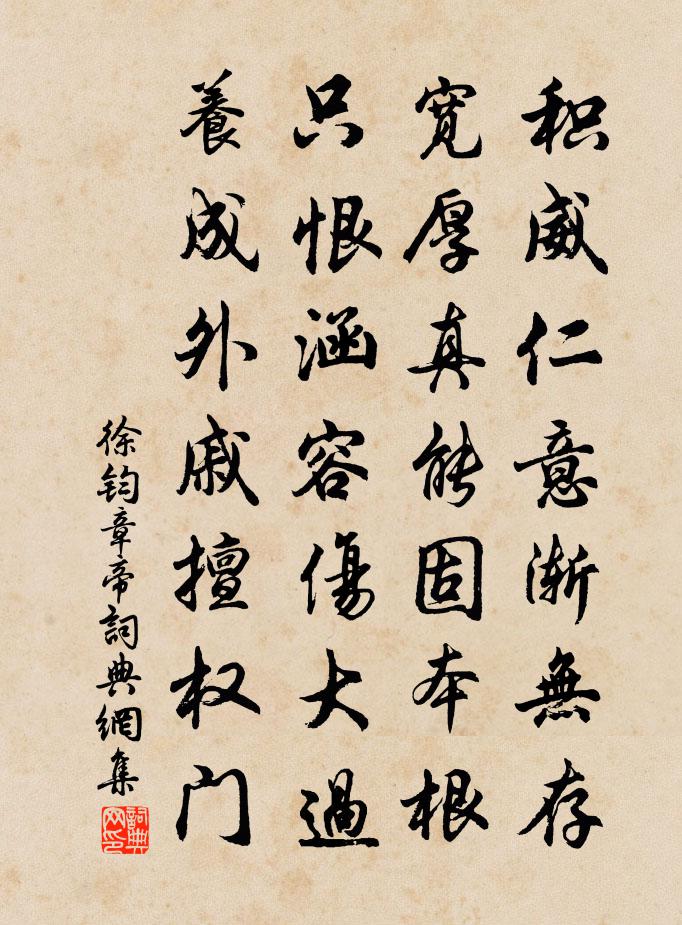 积威仁意渐無存
寛厚真能固本根
只恨涵容傷大過
養成外戚擅权门
徐鈞章帝詞典網集
詞典网印